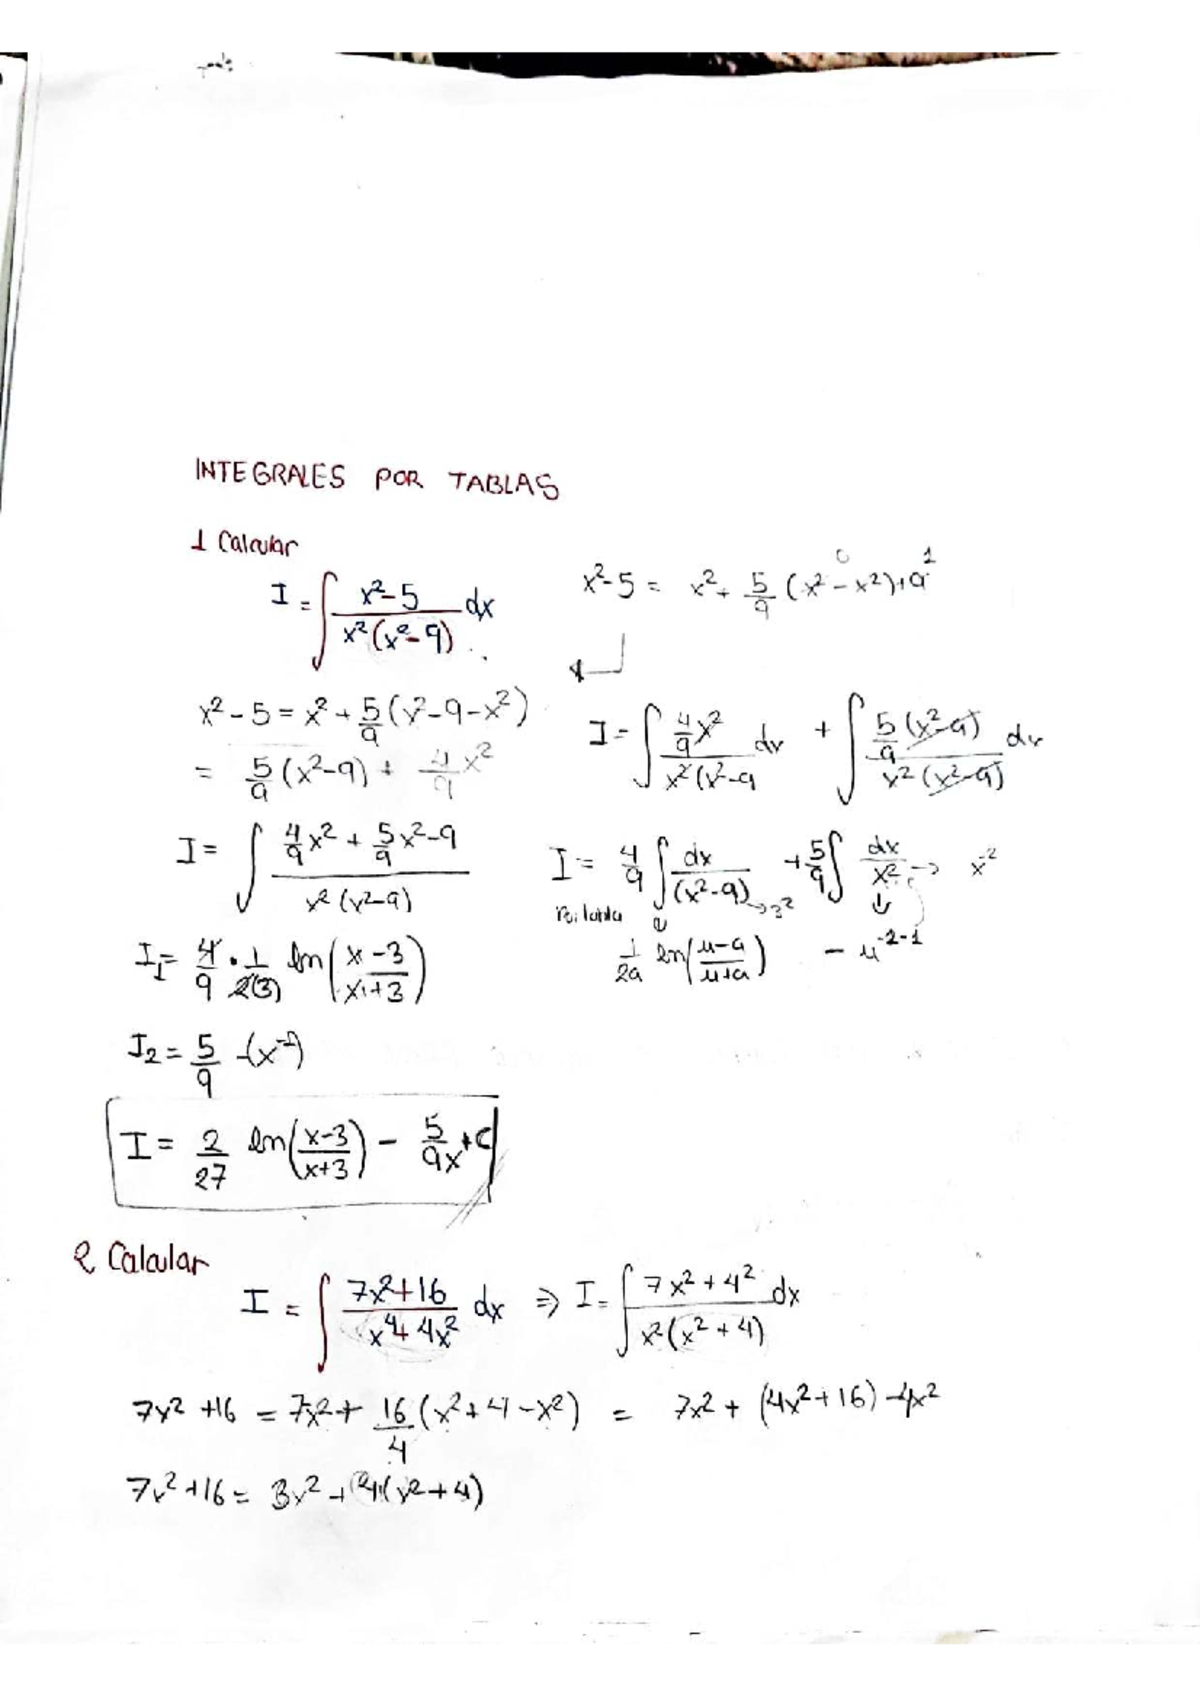 INTEGRALES POR TABLAS
1 Calcular
I = ∫ (x²-5)/(x²(x²-9)) dx
x²-5 = x² + 5/9 (x² - x²)+9
x²-5 = x² + 5/9 (x²-9-x²)
= 5/9 (x²-9) + 4/9 x²
I = ∫ (4/9 x²)/(x²(x²-9) dx + ∫ (5/9 (x²-9))/(x²(x²-9)) dx
I = ∫ (4/9 x² + 5/9 x²-9)/(x²(x²-9))
I = 4/9 ∫ dx/(x²-9) → 3² + 5/9 ∫ dx/x² → x⁻²
Por tabla
1/2a ln((u-a)/(u+a)) - u⁻²⁻¹
I₁ = 4/9 · 1/2(3) ln((x-3)/(x+3))
I₂ = 5/9 -(x⁻¹)
I = 2/27 ln((x-3)/(x+3)) - 5/9x + C
2 Calcular
I = ∫ (7x²+16)/(x⁴+4x²) dx ⇒ I = ∫ (7x²+4²)/(x²(x²+4)) dx
7x²+16 = 7x² + 16/4 (x²+4-x²) = 7x² + (4x²+16) - 4x²
7x²+16 = 3x² + 4(x²+4)